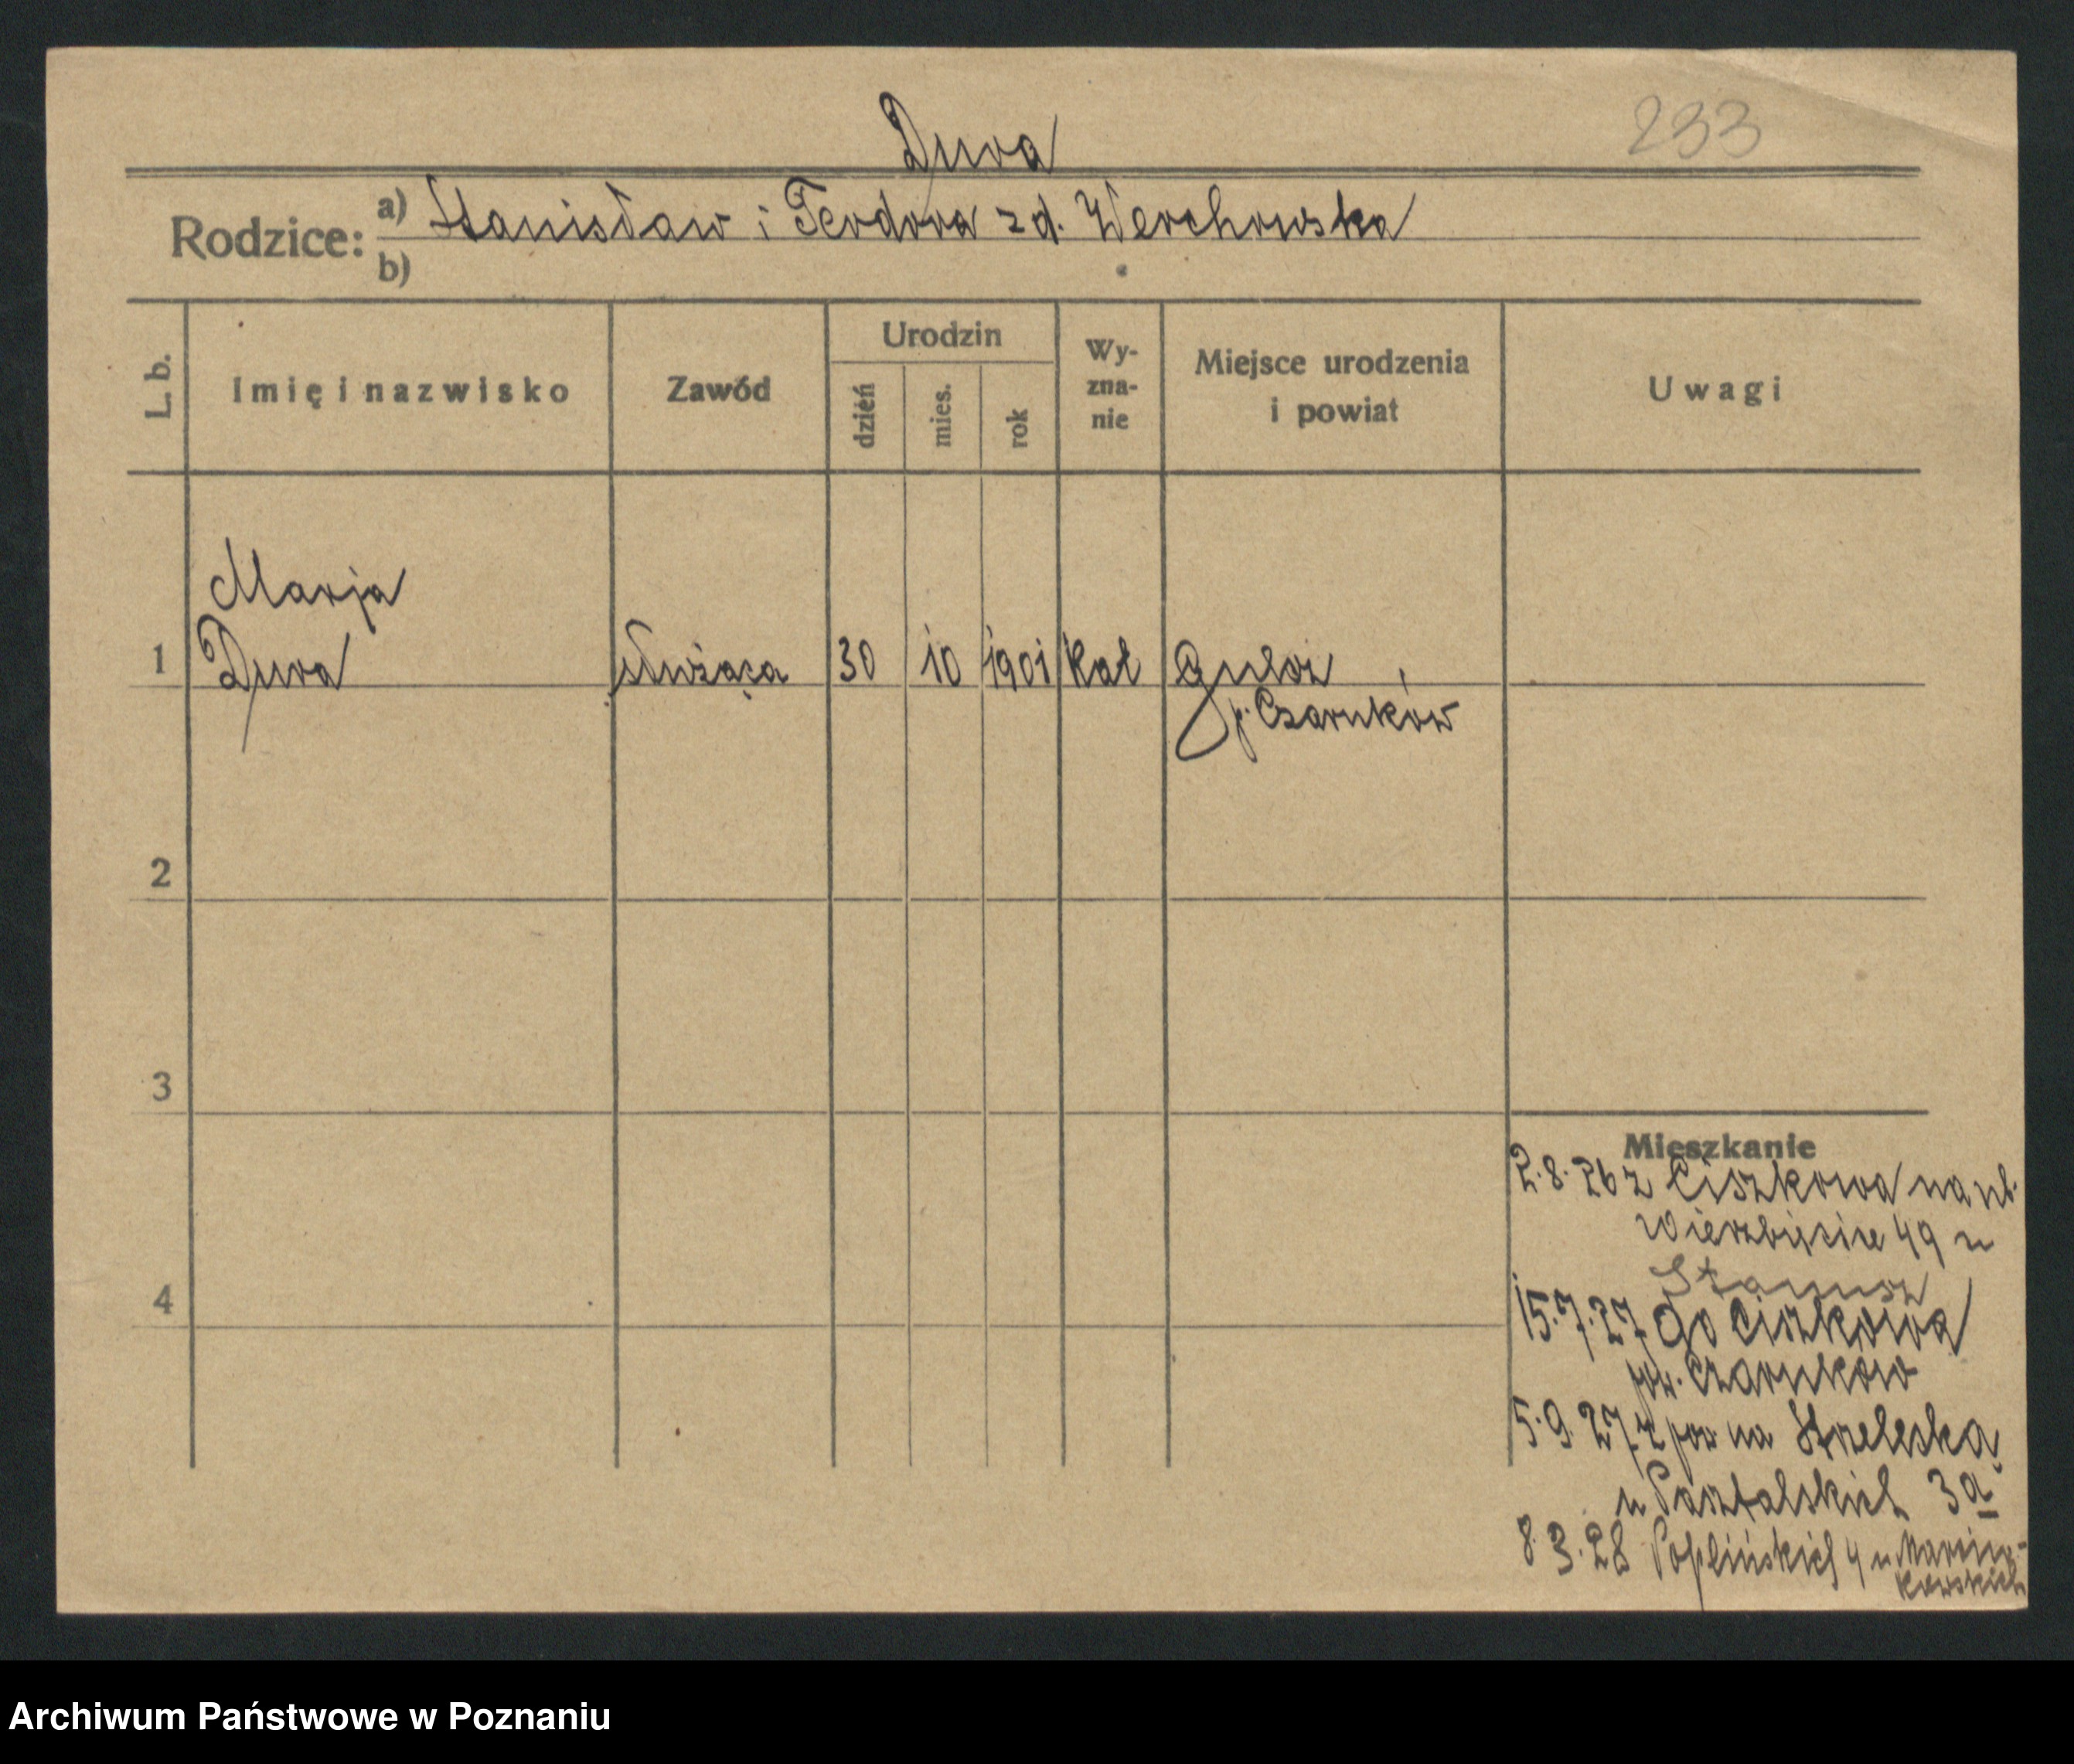 Duwa
233
Rodzice: a) Stanisław i Teodora z d. Werchowska
b)
L. b.
Imię i nazwisko
Zawód
Urodzin
dzień
mies.
rok
Wy-
zna-
nie
Miejsce urodzenia
i powiat
Uwagi
Marja
1 Duwa służąca 30 10 1901 kat Gulcz
p. Czarnków
2
3
4
Mieszkanie
2.8.26 z Ciszkowa na ul.
Wierzbięcice 49 u
15.7.27 do Ciszkowa
pow. Czarnków
5.9.27 z pow na Strzelecką
u 3a
8.3.28 Poplińskich 4 u Marcin-
kowskich
Archiwum Państwowe w Poznaniu